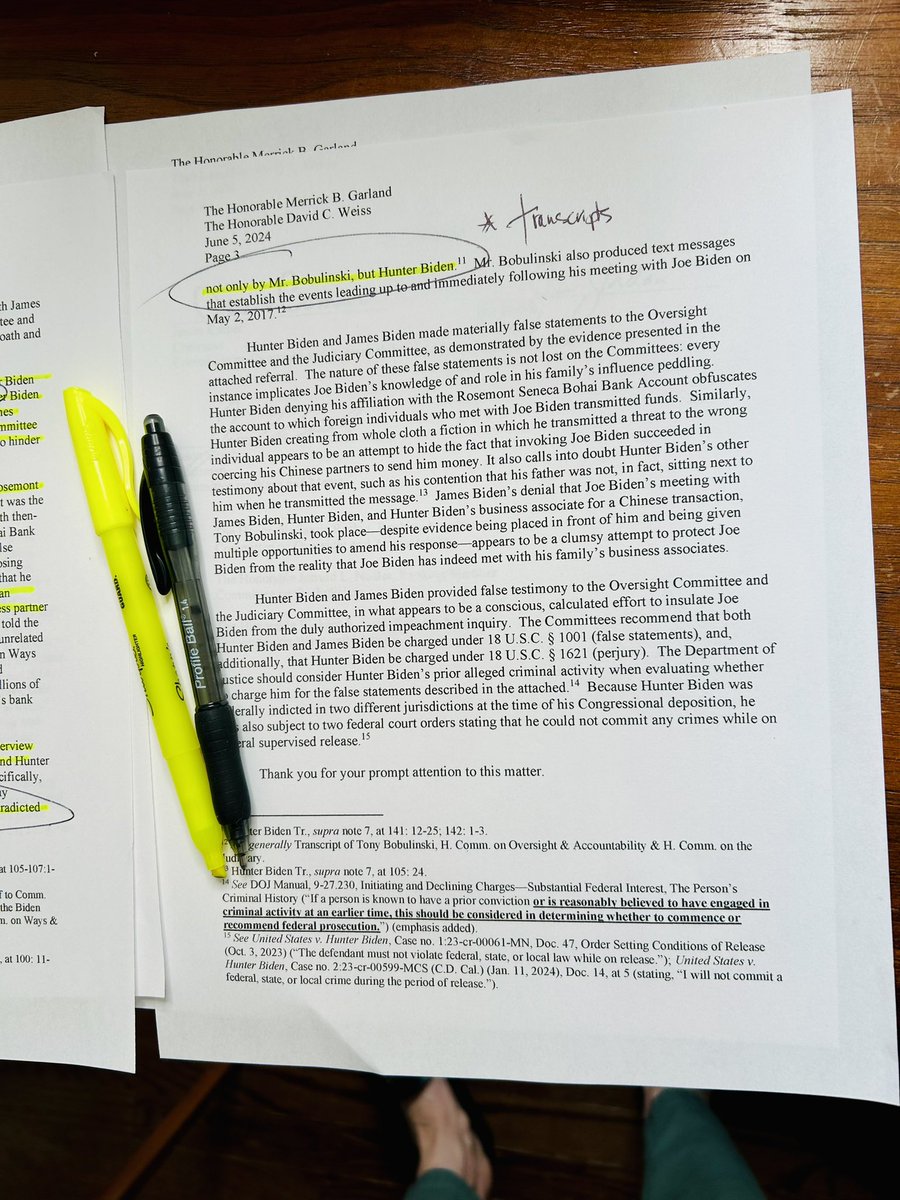 The Honorable Merrick B. Garland
The Honorable Merrick B. Garland
The Honorable David C. Weiss
June 5, 2024
Page 3
* transcripts
not only by Mr. Bobulinski, but Hunter Biden.11 Mr. Bobulinski also produced text messages
that establish the events leading up to and immediately following his meeting with Joe Biden on
May 2, 2017.12
Hunter Biden and James Biden made materially false statements to the Oversight
Committee and the Judiciary Committee, as demonstrated by the evidence presented in the
attached referral. The nature of these false statements is not lost on the Committees: every
instance implicates Joe Biden's knowledge of and role in his family's influence peddling.
Hunter Biden denying his affiliation with the Rosemont Seneca Bohai Bank Account obfuscates
the account to which foreign individuals who met with Joe Biden transmitted funds. Similarly,
Hunter Biden creating from whole cloth a fiction in which he transmitted a threat to the wrong
individual appears to be an attempt to hide the fact that invoking Joe Biden succeeded in
coercing his Chinese partners to send him money. It also calls into doubt Hunter Biden's other
testimony about that event, such as his contention that his father was not, in fact, sitting next to
him when he transmitted the message.13 James Biden's denial that Joe Biden's meeting with
James Biden, Hunter Biden, and Hunter Biden's business associate for a Chinese transaction,
Tony Bobulinski, took place—despite evidence being placed in front of him and being given
multiple opportunities to amend his response—appears to be a clumsy attempt to protect Joe
Biden from the reality that Joe Biden has indeed met with his family's business associates.
Hunter Biden and James Biden provided false testimony to the Oversight Committee and
the Judiciary Committee, in what appears to be a conscious, calculated effort to insulate Joe
Biden from the duly authorized impeachment inquiry. The Committees recommend that both
Hunter Biden and James Biden be charged under 18 U.S.C. § 1001 (false statements), and,
additionally, that Hunter Biden be charged under 18 U.S.C. § 1621 (perjury). The Department of
ustice should consider Hunter Biden's prior alleged criminal activity when evaluating whether
charge him for the false statements described in the attached.14 Because Hunter Biden was
erally indicted in two different jurisdictions at the time of his Congressional deposition, he
also subject to two federal court orders stating that he could not commit any crimes while on
eral supervised release.15
Thank you for your prompt attention to this matter.
ter Biden Tr., supra note 7, at 141: 12-25; 142: 1-3.
generally Transcript of Tony Bobulinski, H. Comm. on Oversight & Accountability & H. Comm. on the
ary.
Hunter Biden Tr., supra note 7, at 105: 24.
14 See DOJ Manual, 9-27.230, Initiating and Declining Charges—Substantial Federal Interest, The Person's
Criminal History ("If a person is known to have a prior conviction or is reasonably believed to have engaged in
criminal activity at an earlier time, this should be considered in determining whether to commence or
recommend federal prosecution.") (emphasis added).
15 See United States v. Hunter Biden, Case no. 1:23-cr-00061-MN, Doc. 47, Order Setting Conditions of Release
(Oct. 3, 2023) ("The defendant must not violate federal, state, or local law while on release."); United States v.
Hunter Biden, Case no. 2:23-cr-00599-MCS (C.D. Cal.) (Jan. 11, 2024), Doc. 14, at 5 (stating, "I will not commit a
federal, state, or local crime during the period of release.").
th James
tee and
oath and
Biden
Biden
nes
mmittee
o hinder
osemont
t was the
th then-
ai Bank
lse
osing
that he
an
ess partner
told the
unrelated
n Ways
d
llions of
's bank
erview
nd Hunter
cifically,
y
radicted
at 105-107:1-
f to Comm.
the Biden
m. on Ways &
, at 100: 11-
Profile Ball 1.4